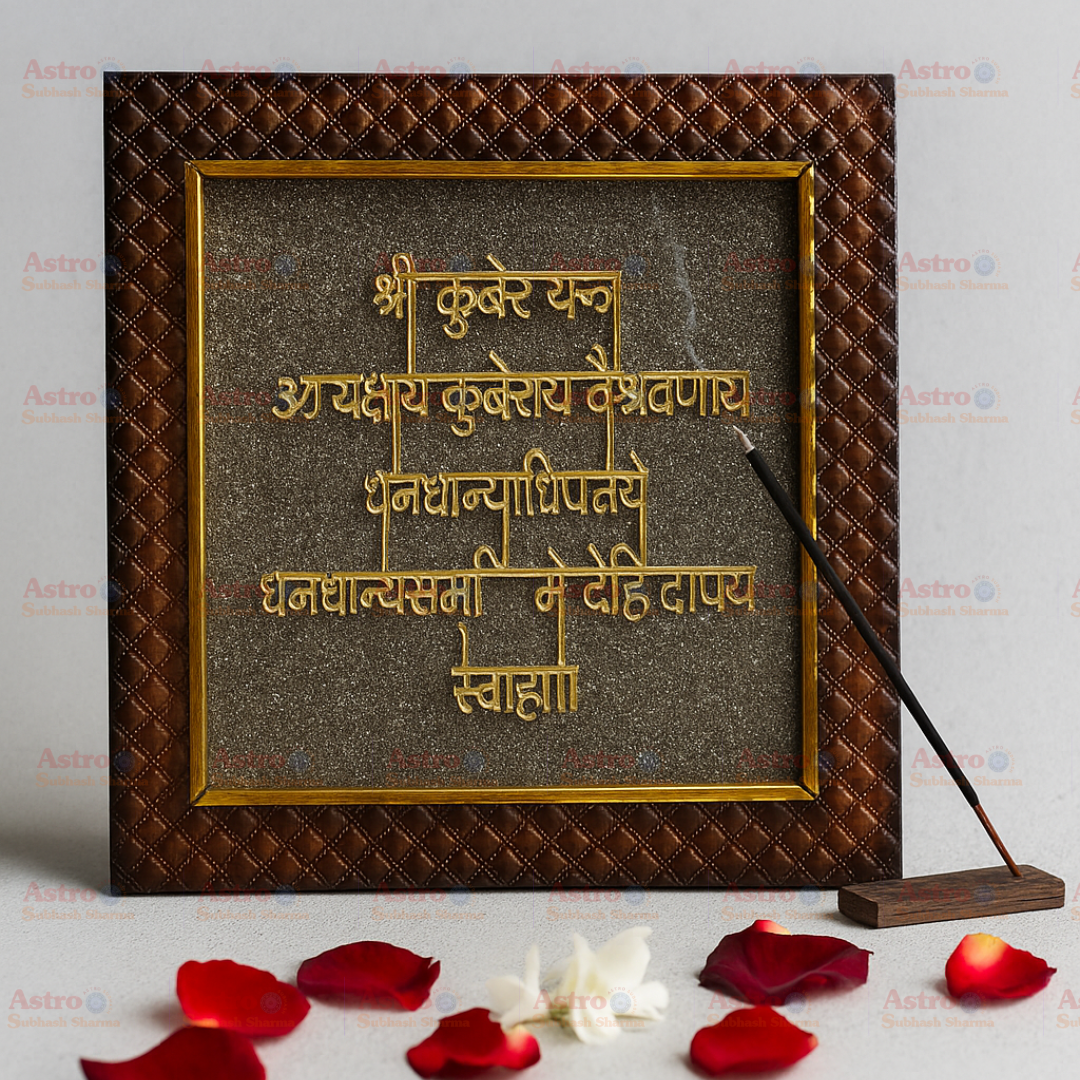 श्री कुबेर यन्त्र
ॐ यक्षाय कुबेराय वैश्रवणाय
धनधान्याधिपतये
धनधान्यसमा मे देहि दापय
स्वाहााा
Astro
Subhash Sharma